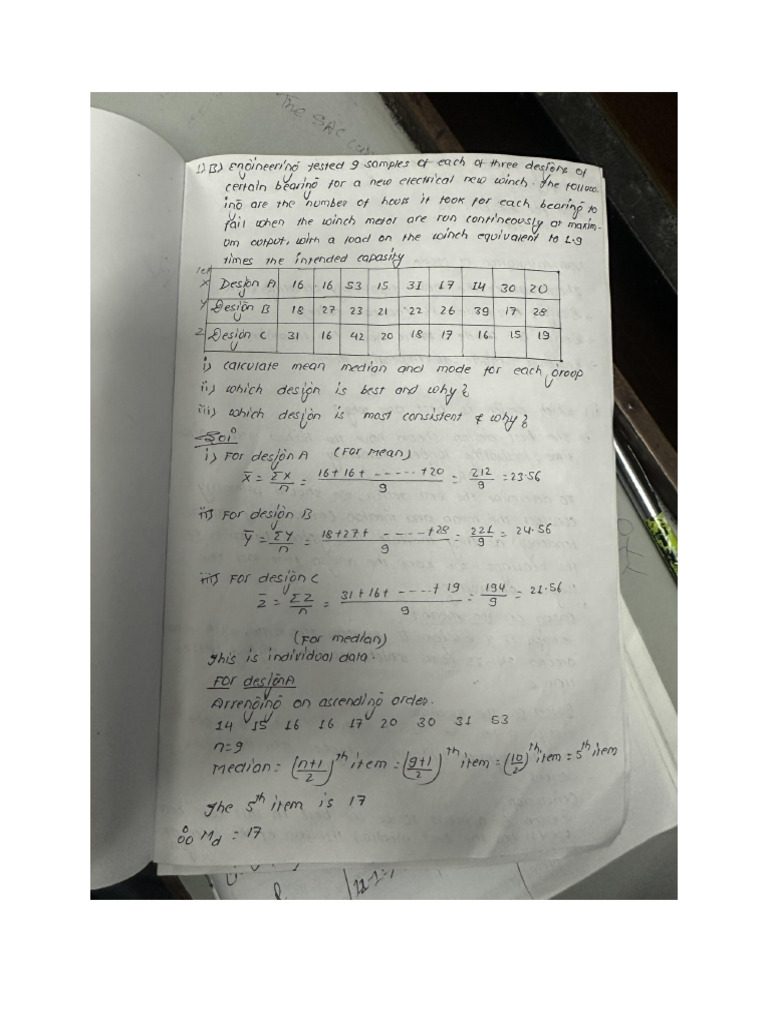 The SAC
1) B) Engineering tested 9 samples of each of three designs of
certain bearing for a new electrical new winch. The follow-
ing are the number of hours it took for each bearing to
fail when the winch motor are run contineously at maxim-
um output, with a load on the winch equivalent to 1.9
times the intended capasity
let
X Design A 16 16 53 15 31 17 14 30 20
Y Design B 18 27 23 21 22 26 39 17 28
Z Design C 31 16 42 20 18 17 16 15 19
i) calculate mean median and mode for each group
ii) which design is best and why?
iii) which design is most consistent & why?
Soln
i) For design A (For Mean)
X̄ = ΣX/n = 16+16+ ----- +20/9 = 212/9 = 23.56
ii) For design B
Ȳ = ΣY/n = 18+27+ - ---- +28/9 = 221/9 = 24.56
iii) For design C
Z̄ = ΣZ/n = 31+16+ ----- + 19/9 = 194/9 = 21.56
(For median)
This is individual data.
For design A
Arrenging on ascending order.
14 15 16 16 17 20 30 31 53
n=9
Median = (n+1/2)th item = (9+1/2)th item = (10/2)th item = 5th item
The 5th item is 17
∴ Md = 17